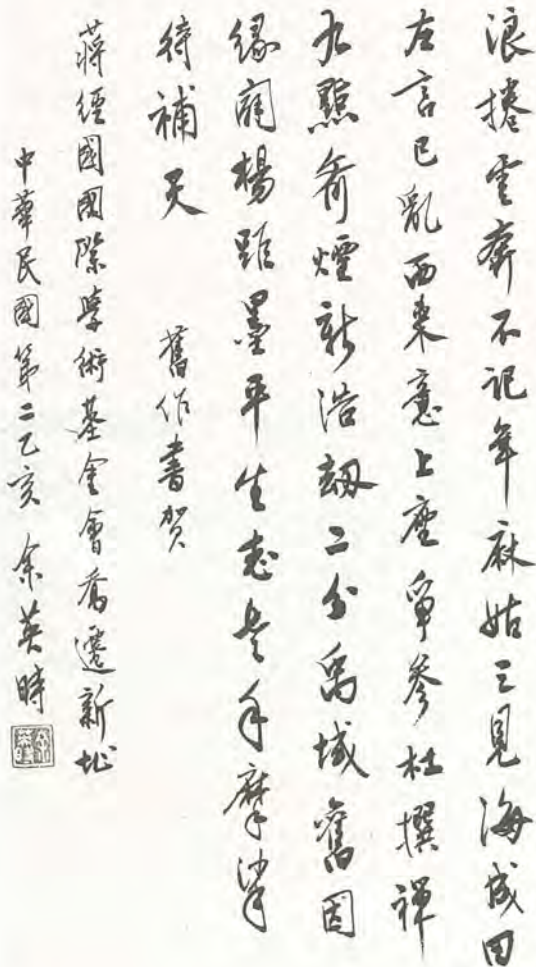 浪捲雲奔不記年麻姑三見海成田
左言已亂西來意上座爭參杜撰禪
九點齊煙新浩劫二分禹域舊因
緣闢楊距墨平生志老手摩挲
待補天 舊作書賀
蔣經國國際學術基金會喬遷新址
中華民國第二乙亥 余英時